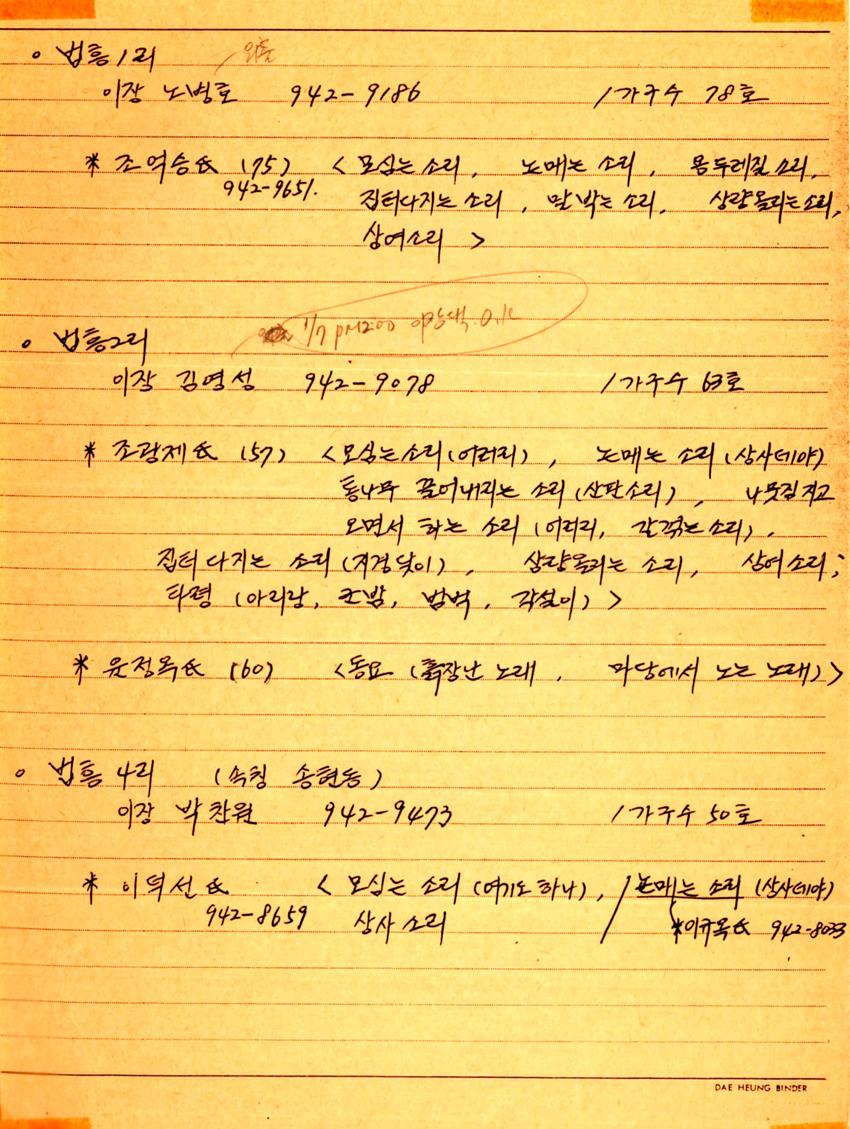 ○ 법흥1리
이장 노병호 942-9186 /가구수 78호
* 조역승氏 (75) <모심는 소리, 논매는 소리, 용두레질 소리,
942-9651. 집터다지는 소리, 말박는 소리, 상량올리는 소리,
상여소리 >
1/7 PM2:00 이장댁 O.K
○ 법흥2리
이장 김영성 942-9078 /가구수 63호
* 조광제氏 (57) <모심는소리(어러리), 논매는 소리(상사데야)
통나무 끌어내리는 소리(산판소리), 나뭇짐 지고
오면서 하는 소리(어러리, 갈꺾는소리),
집터 다지는 소리(지경닺이), 상량올리는 소리, 상여소리;
타령 (아리랑, 군밤, 범벅, 각설이)>
* 윤정옥氏 (60) <동요 (흙장난 노래, 마당에서 노는 노래)>
○ 법흥 4리 (속칭 송현동)
이장 박찬원 942-9473 /가구수 50호
* 이덕선氏 < 모심는 소리(여기도 하나), / 논매는 소리 (상사데야)
942-8659 상사 소리 / *이규옥氏 942-8033
DAE HEUNG BINDER